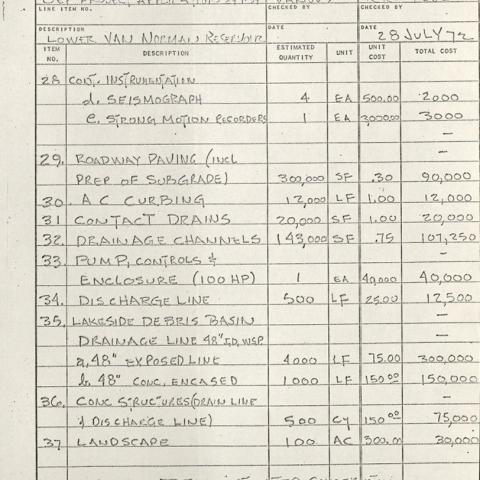 LINE ITEM NO. CHECKED BY CHECKED BY
DESCRIPTION DATE DATE
LOWER VAN NORMAN RESERVOIR 28 JULY 72
ITEM NO. DESCRIPTION ESTIMATED QUANTITY UNIT UNIT COST TOTAL COST
28 CONT. INSTRUMENTATION
d. SEISMOGRAPH 4 EA 500.00 2000
e. STRONG MOTION RECORDERS 1 EA 3000.00 3000
—
29. ROADWAY PAVING (INCL —
PREP OF SUBGRADE) 300,000 SF .30 90,000
30. A C CURBING 12,000 LF 1.00 12,000
31 CONTACT DRAINS 20,000 SF 1.00 20,000
32. DRAINAGE CHANNELS 143,000 SF .75 107,250
33. PUMP, CONTROLS & —
ENCLOSURE (100 HP) 1 EA 40,000 40,000
34. DISCHARGE LINE 500 LF 25.00 12,500
35. LAKESIDE DEBRIS BASIN —
DRAINAGE LINE 48" I.D, WSP —
a, 48" EXPOSED LINE 4000 LF 75.00 300,000
b, 48" CONC, ENCASED 1000 LF 150.00 150,000
36. CONC STRUCTURES (DRAIN LINE —
& DISCHARGE LINE) 500 CY 150.00 75,000
37 LANDSCAPE 100 AC 300.00 30,000